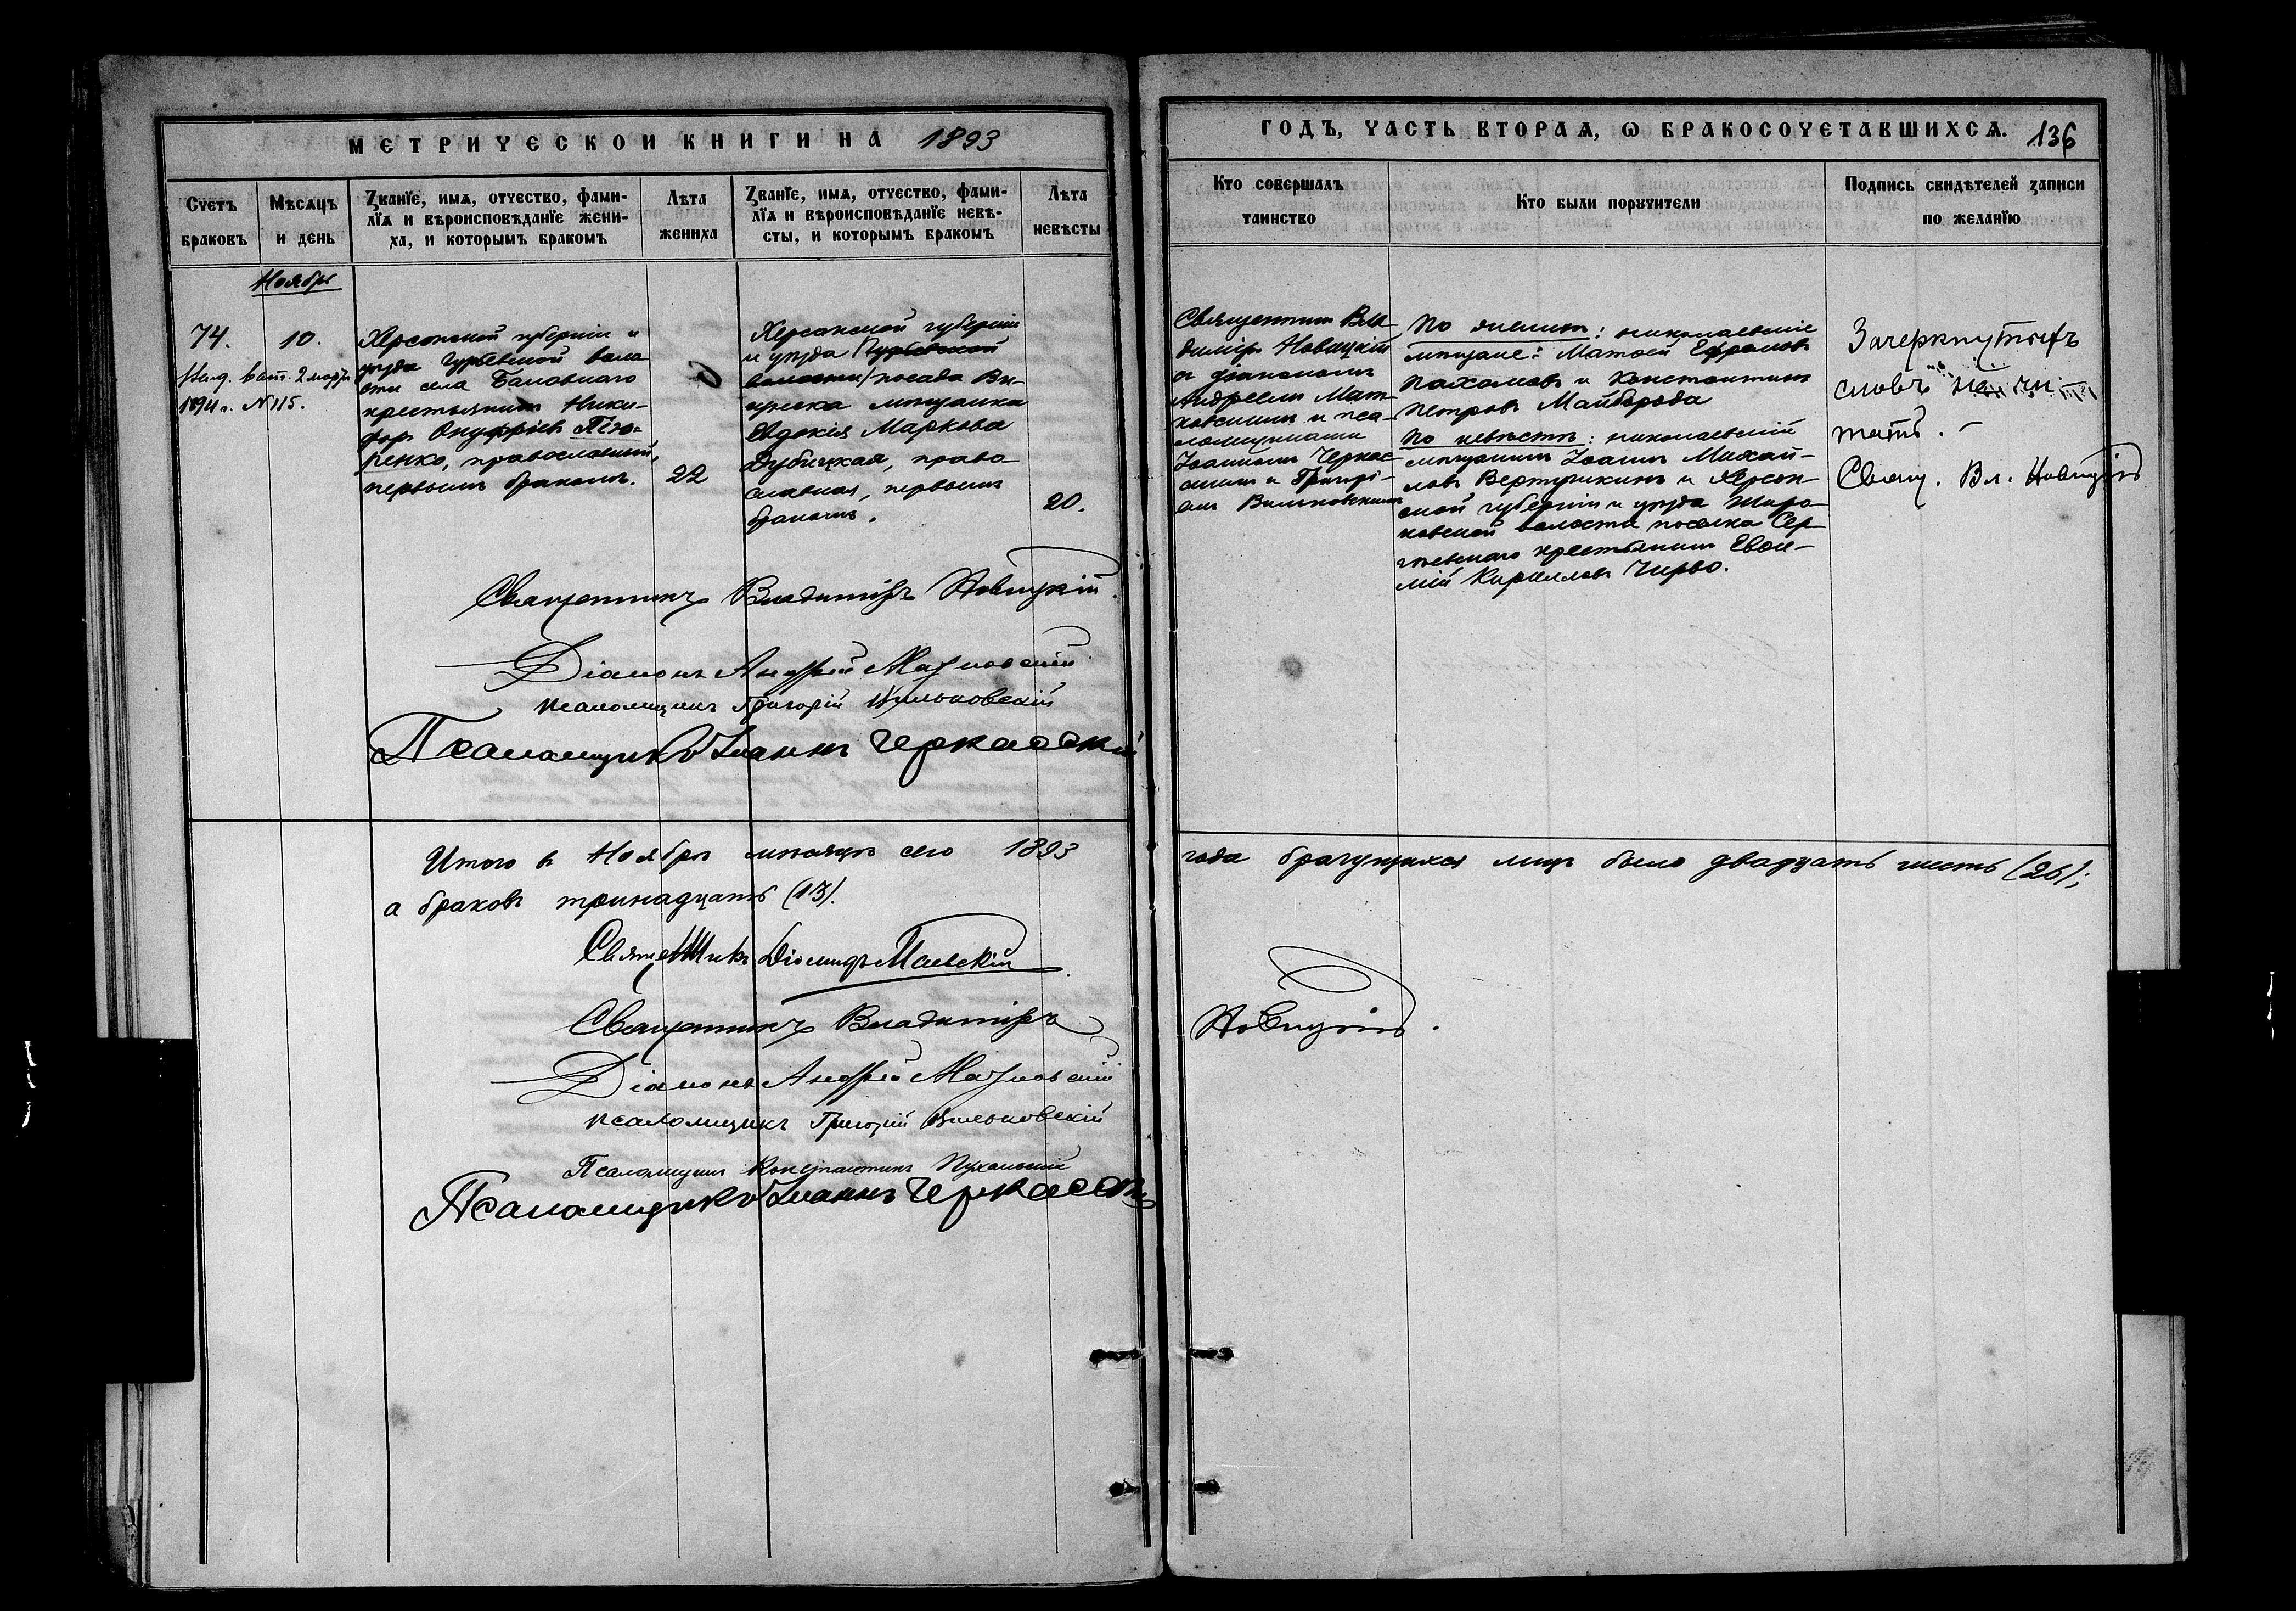 МЕТРИЧЕСКОЙ КНИГИ НА 1893
ГОДЪ, ЧАСТЬ ВТОРАѦ, Ѡ БРАКОСОЧЕТАВШИХСѦ. 136
Счетъ браковъ
Мѣсѧцъ и день
Званїе, имѧ, отчество, фами-
лїѧ и вѣроисповѣданїе жени-
ха, и которымъ бракомъ
Лѣта жениха
Званїе, имѧ, отчество, фами-
лїѧ и вѣроисповѣданїе невѣ-
сты, и которымъ бракомъ
Лѣта невѣсты
Кто совершалъ таинство
Кто были порꙋчители
Подпись свидѣтелей записи по желанїю
Ноябрь
74.
10.
Выд. 2 марта
1894 г. №115.
Херсонской губерніи и
уѣзда Гурьевской воло-
сти села Баловнаго
крестьянинъ Ники-
форъ Онуфріевъ
ренко, православный,
первымъ бракомъ.
22
Херсонской губерніи
и уѣзда Гурьевской
волости/посада Ви-
мѣщанка
Евдокія Маркова
Дубицкая, право-
славная, первымъ
бракомъ.
20.
Священникъ Вла-
диміръ Новицкій
съ діакономъ
Андреемъ Мат-
ковскимъ и пса-
ломщиками
Іоанномъ Черкас-
скимъ и Григорі-
емъ Вильковскимъ
По женихѣ: николаевскіе
мѣщане: Матѳей Ефремовъ
Пахомовъ и Константинъ
Петровъ Майборода
По невѣстѣ: николаевскій
мѣщанинъ Іоаннъ Михай-
ловъ Вертушкинъ и Херсон-
ской губерніи и уѣзда Широ-
ковской волости поселка Сер-
гѣевкаго крестьянинъ Евѳи-
мій Кирилловъ Чирво.
Зачеркнутыхъ
словъ не чи-
тать.
Свящ. Вл. Новицкій
Священникъ Владиміръ Новицкій.
Діаконъ Андрей Матковскій
псаломщикъ Григорій Вильковскій
Псаломщикъ Іоаннъ Черкасскій
Итого въ Ноябрѣ мѣсяцѣ сего 1893
года брачущихся лицъ было двадцать шесть (26);
а браковъ тринадцать (13).
Священникъ Діомидъ
Священникъ Владиміръ
Новицкій.
Діаконъ Андрей Матковскій
псаломщикъ Григорій Вильковскій
Псаломщикъ Константинъ
Псаломщикъ Іоаннъ Черкасскій